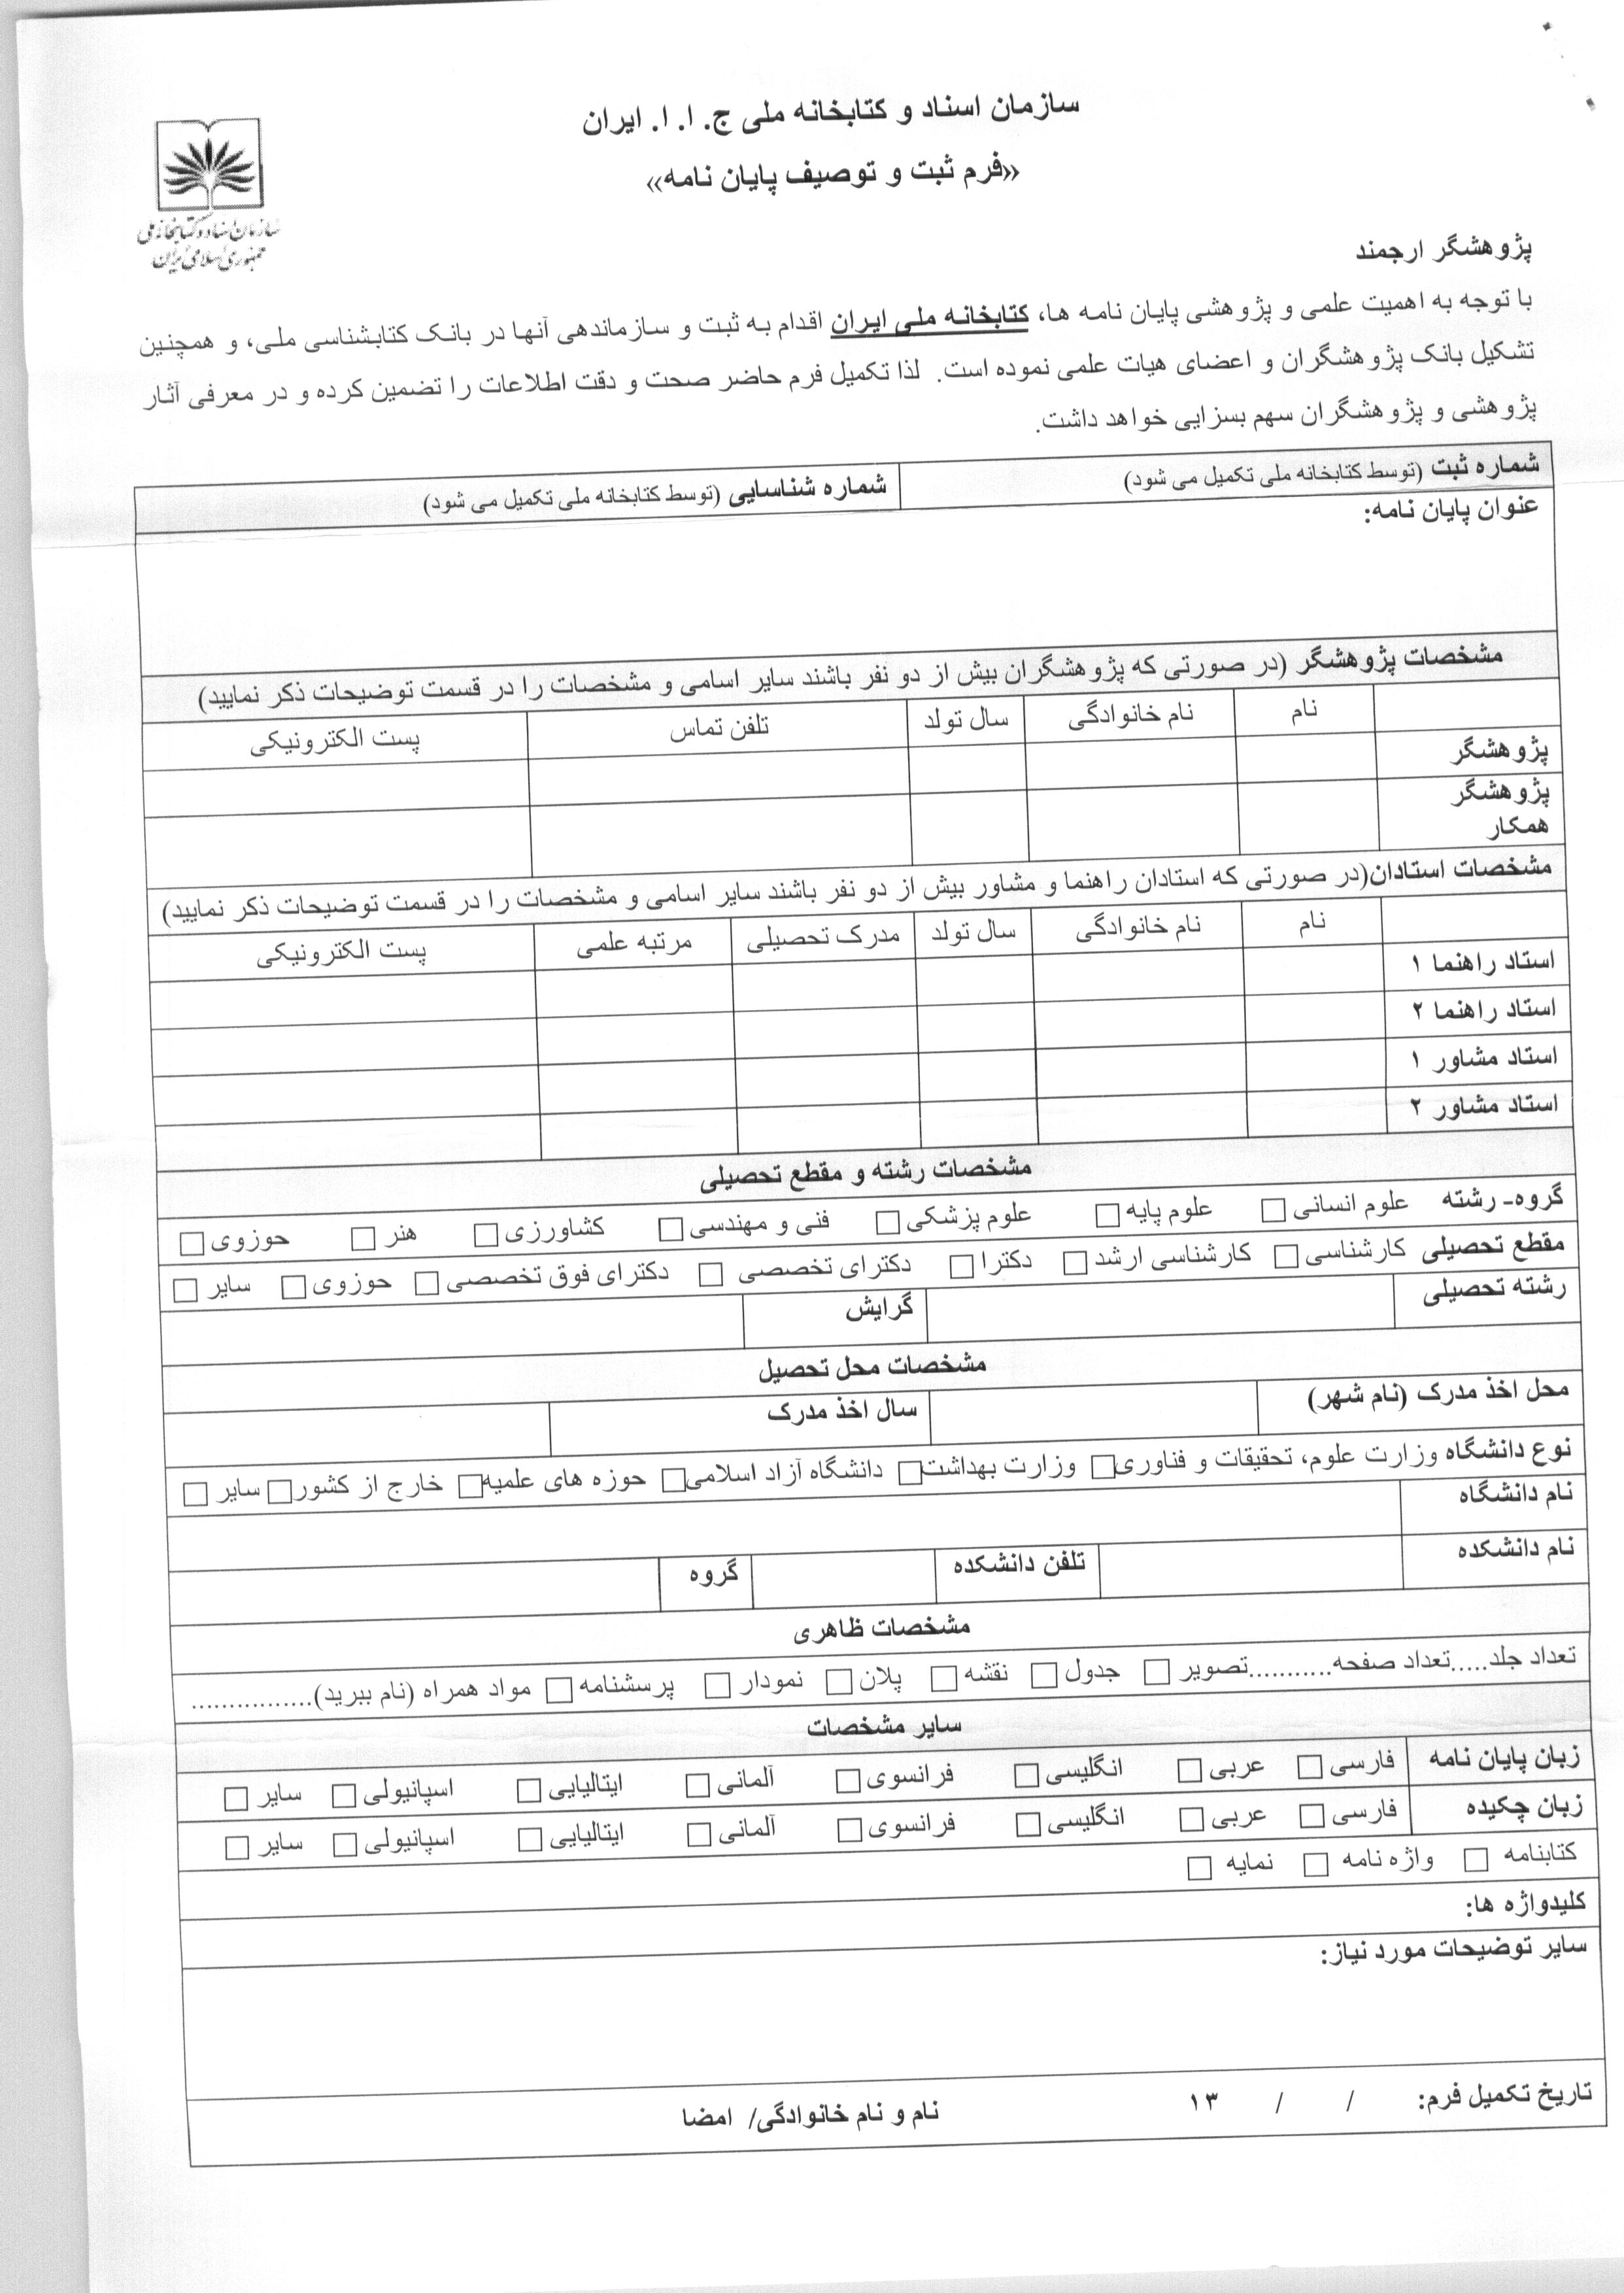 سازمان اسناد و کتابخانه ملی ج. ا. ا. ایران
«فرم ثبت و توصیف پایان نامه»
سازمان اسناد و کتابخانه ملی
جمهوری اسلامی ایران
پژوهشگر ارجمند
با توجه به اهمیت علمی و پژوهشی پایان نامه ها، کتابخانه ملی ایران اقدام به ثبت و سازماندهی آنها در بانک کتابشناسی ملی، و همچنین
تشکیل بانک پژوهشگران و اعضای هیات علمی نموده است. لذا تکمیل فرم حاضر صحت و دقت اطلاعات را تضمین کرده و در معرفی آثار
پژوهشی و پژوهشگران سهم بسزایی خواهد داشت.
شماره ثبت (توسط کتابخانه ملی تکمیل می شود) شماره شناسایی (توسط کتابخانه ملی تکمیل می شود)
عنوان پایان نامه:
مشخصات پژوهشگر (در صورتی که پژوهشگران بیش از دو نفر باشند سایر اسامی و مشخصات را در قسمت توضیحات ذکر نمایید)
نام نام خانوادگی سال تولد تلفن تماس پست الکترونیکی
پژوهشگر
پژوهشگر
همکار
مشخصات استادان(در صورتی که استادان راهنما و مشاور بیش از دو نفر باشند سایر اسامی و مشخصات را در قسمت توضیحات ذکر نمایید)
نام نام خانوادگی سال تولد مدرک تحصیلی مرتبه علمی پست الکترونیکی
استاد راهنما ۱
استاد راهنما ۲
استاد مشاور ۱
استاد مشاور ۲
مشخصات رشته و مقطع تحصیلی
گروه- رشته علوم انسانی □ علوم پایه □ علوم پزشکی □ فنی و مهندسی □ کشاورزی □ هنر □ حوزوی □
مقطع تحصیلی کارشناسی □ کارشناسی ارشد □ دکترا □ دکترای تخصصی □ دکترای فوق تخصصی □ حوزوی □ سایر □
رشته تحصیلی گرایش
مشخصات محل تحصیل
محل اخذ مدرک (نام شهر) سال اخذ مدرک
نوع دانشگاه وزارت علوم، تحقیقات و فناوری□ وزارت بهداشت□ دانشگاه آزاد اسلامی□ حوزه های علمیه□ خارج از کشور□ سایر □
نام دانشگاه
نام دانشکده تلفن دانشکده گروه
مشخصات ظاهری
تعداد جلد.....تعداد صفحه...........تصویر □ جدول □ نقشه □ پلان □ نمودار □ پرسشنامه □ مواد همراه (نام ببرید)................
سایر مشخصات
زبان پایان نامه فارسی □ عربی □ انگلیسی □ فرانسوی □ آلمانی □ ایتالیایی □ اسپانیولی □ سایر □
زبان چکیده فارسی □ عربی □ انگلیسی □ فرانسوی □ آلمانی □ ایتالیایی □ اسپانیولی □ سایر □
کتابنامه □ واژه نامه □ نمایه □
کلیدواژه ها:
سایر توضیحات مورد نیاز:
تاریخ تکمیل فرم: / / ۱۳ نام و نام خانوادگی/ امضا